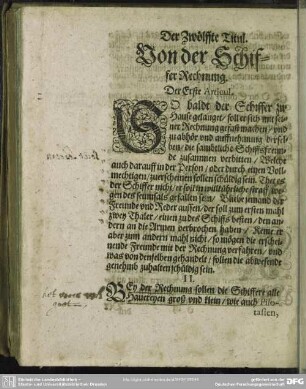 Der Zwölffte Titul.
Von der Schif-
fer Rechnung.
Der Erste Articul.
SO baldt der Schiffer zu
Hause gelanget / soll er sich mit sei-
ner Rechnung gefast machen / und
zu abhör und auffnehmung derosel-
ben / die sämbtliche Schiffsfreun-
de zusammen verbitten / Welche
auch darauff in der Person / oder durch einen Voll-
mechtigen / zuerscheinen sollen schüldig sein. Thet es
der Schiffer nicht / er soll in willkührliche straff we-
gen des seumsals gefallen sein / Bliebe jemand der
Freunde und Reder aussen / der soll zum ersten mahl
zwey Thaler / einen zu des Schiffs besten / den an-
dern an die Armen verbrochen haben / Keme er
aber zum andern mahl nicht / so mögen die erschei-
nende Freunde mit der Rechnung verfahren / und
was von denselben gehandelt / sollen die abwesende
genehmb zuhalten schüldig sein.
II.
BEy der Rechnung sollen die Schiffere alle
Haureyen groß und klein / wie auch Pilo-
tasien,